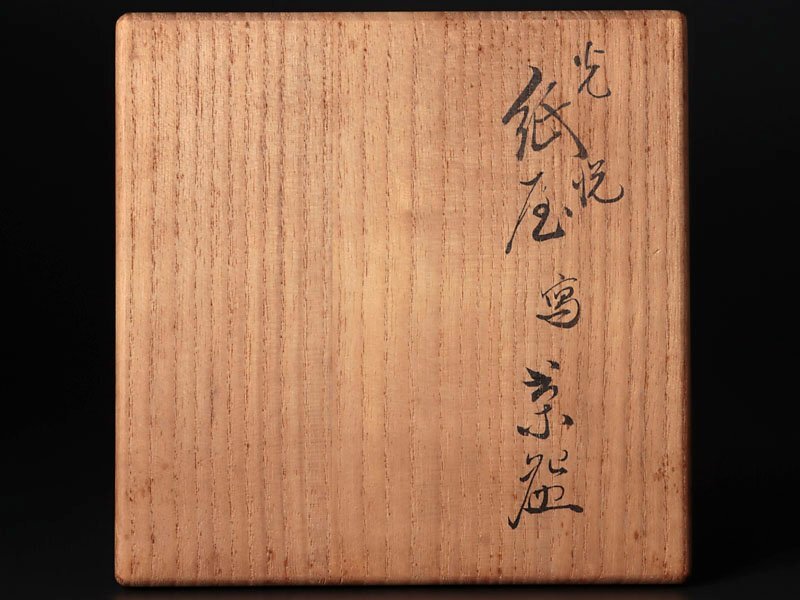 光悦
紙屋 写 茶碗